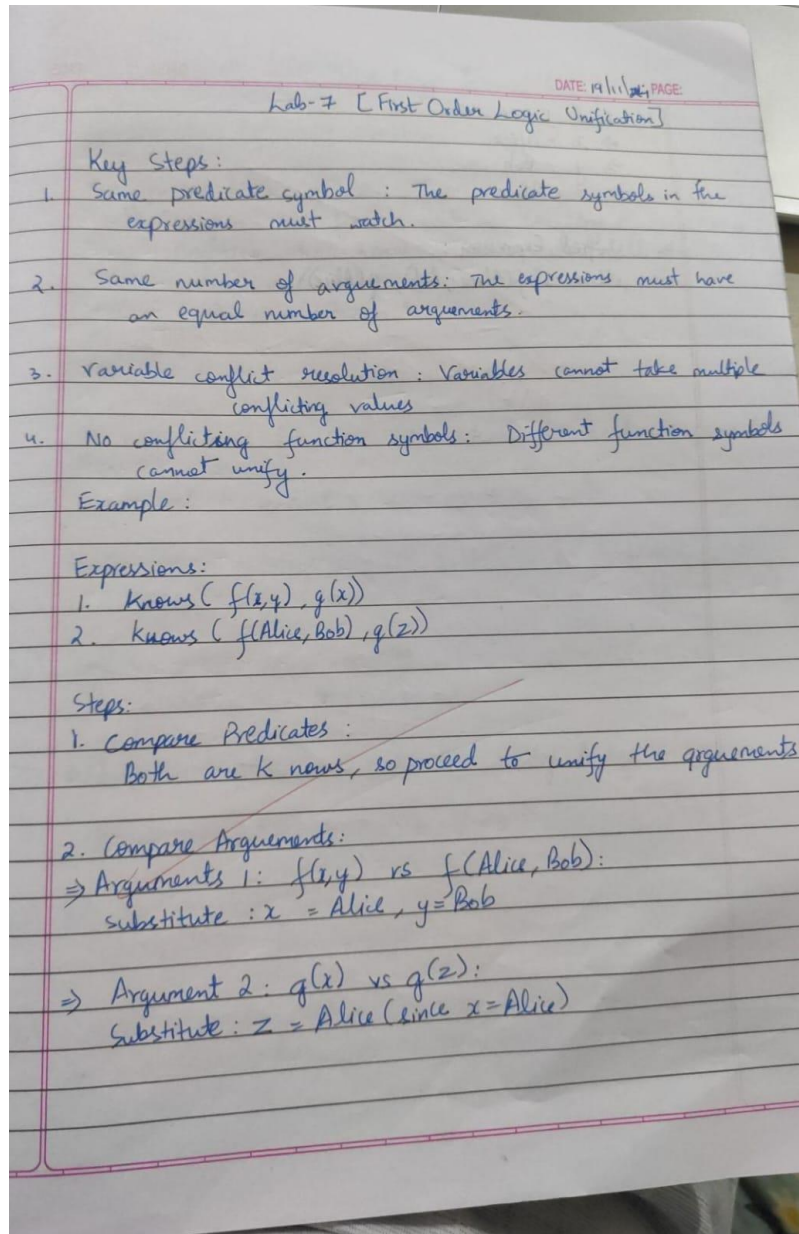 DATE: 19/11/24 PAGE:
Lab-7 [First Order Logic Unification]
Key Steps:
1. Same predicate symbol : The predicate symbols in the
expressions must watch.
2. Same number of arguements: The expressions must have
an equal number of arguements.
3. Variable conflict resolution : Variables cannot take multiple
conflicting values
4. No conflicting function symbols: Different function symbols
cannot unify.
Example :
Expressions:
1. Knows ( f(x,y) , g(x))
2. Knows ( f(Alice, Bob) , g(z))
Steps:
1. Compare Predicates :
Both are K nows, so proceed to unify the arguements
2. Compare Arguements:
⇒ Arguments 1: f(x,y) vs f(Alice, Bob):
substitute : x = Alice, y= Bob
⇒ Argument 2: g(x) vs g(z):
Substitute : z = Alice (since x=Alice)